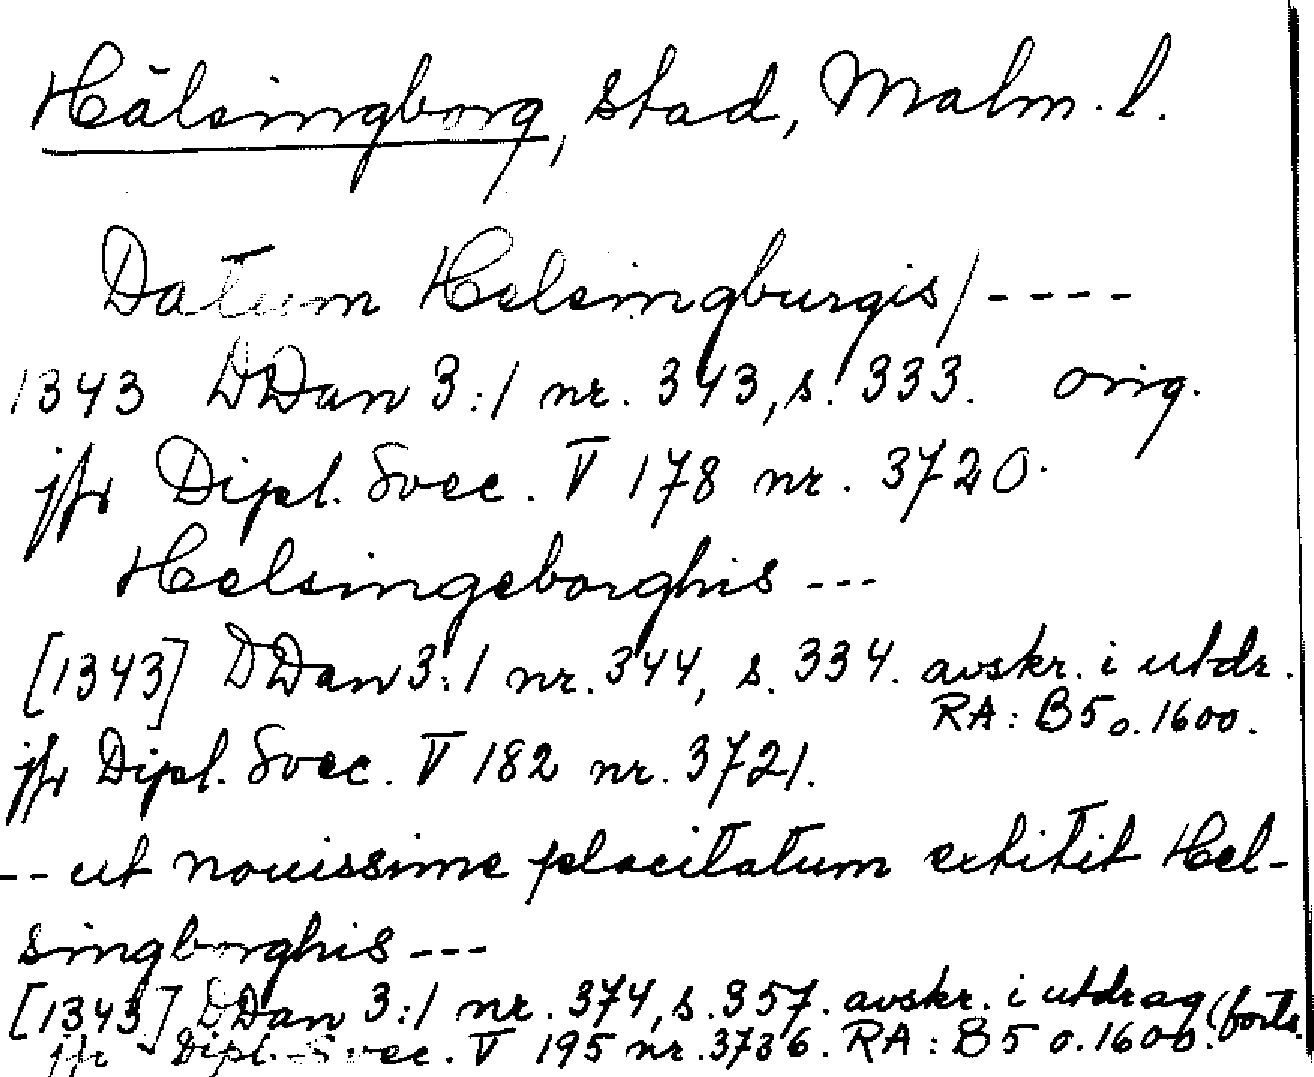 Hälsingborg, stad, Malm. l.
Datum Helsingburgis/----
1343 DDan 3:1 nr. 343, s. 333. orig.
jfr Dipl. Svec. V 178 nr. 3720.
Helsingeborghis ---
[1343] DDan 3:1 nr. 344, s. 334. avskr. i utdr.
RA: B5 o. 1600.
jfr Dipl. Svec. V 182 nr. 3721.
-- ut nouissime placitatum extitit Hel-
singborghis ---
[1343] DDan 3:1 nr. 374, s. 357. avskr. i utdrag (forts.
jfr Dipl. Svec. V 195 nr. 3736. RA: B5 o. 1600.